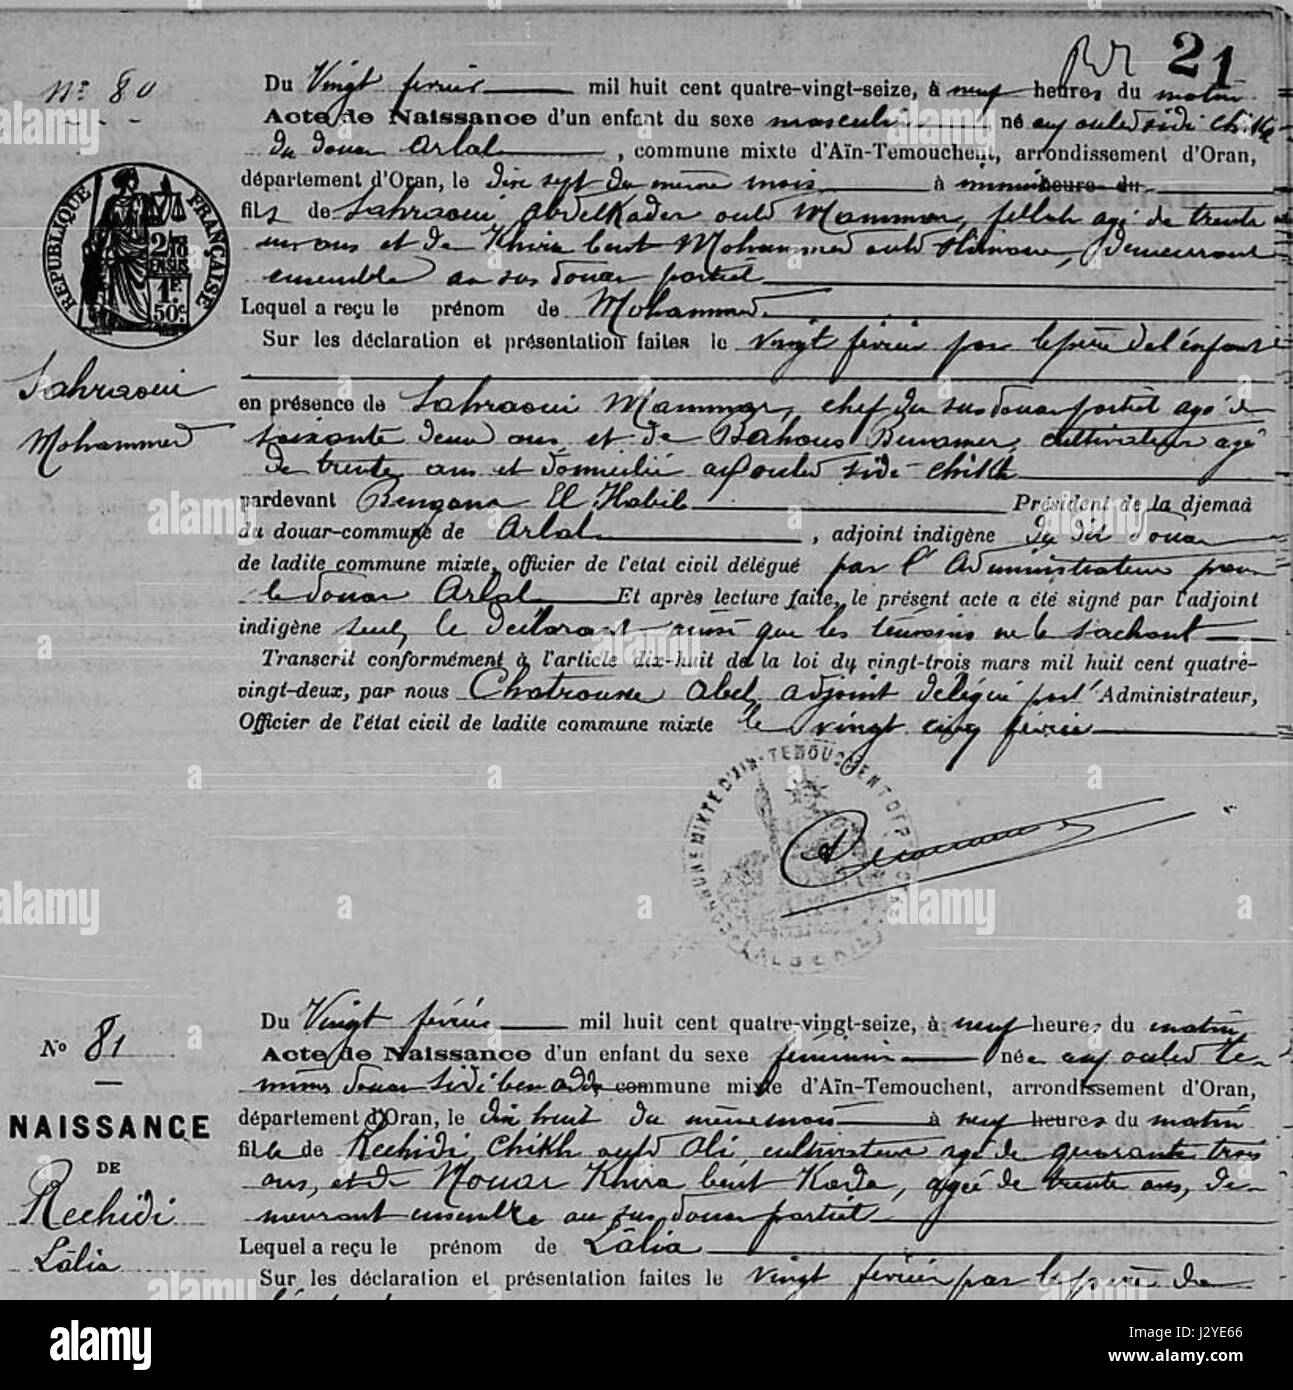 21
N° 80
Du Vingt février mil huit cent quatre-vingt-seize, à neuf heures du matin
Acte de Naissance d'un enfant du sexe masculin né au ouled sidi chikh
du douar Arlal, commune mixte d'Aïn-Temouchent, arrondissement d'Oran,
département d'Oran, le dix sept du même mois à heure du
fils de Sahraoui Abdelkader ould Mammar, fellah agé de trente
ans et de Khira bent Mohammed ould Slimane, demeurant
ensemble au sus douar partiet
Lequel a reçu le prénom de Mohammed.
Sur les déclaration et présentation faites le vingt février par le père de l'enfant
RÉPUBLIQUE FRANÇAISE
2/10 EN SUS
1F. 50c.
Sahraoui
Mohammed
en présence de Sahraoui Mammar, chef du sus douar partiet agé de
soixante deux ans et de Bahous Benamer, cultivateur agé
de trente ans et domicilié au ouled sidi chikh
pardevant Bengana El Habib Président de la djemaà
du douar-commune de Arlal, adjoint indigène du dit douar
de ladite commune mixte, officier de l'état civil délégué par l'Administrateur pour
le douar Arlal Et après lecture faite, le présent acte a été signé par l'adjoint
indigène seul, le déclarant ainsi que les témoins ne le sachant
Transcrit conformément à l'article dix-huit de la loi du vingt-trois mars mil huit cent quatre-
vingt-deux, par nous Chatrousse Abel, adjoint délégué par l'Administrateur,
Officier de l'état civil de ladite commune mixte le vingt cinq février
COMMUNE MIXTE D'AIN-TEMOUCHENT
ALGÉRIE
N° 81
NAISSANCE
DE
Rechidi
Lâlia
Du Vingt février mil huit cent quatre-vingt-seize, à neuf heures du matin,
Acte de Naissance d'un enfant du sexe féminin née au ouled le
même douar sidi ben adda commune mixte d'Aïn-Temouchent, arrondissement d'Oran,
département d'Oran, le dix huit du même mois à neuf heures du matin
fille de Rechidi Chikh ould Ali, cultivateur agé de quarante trois
ans, et de Nouar Khira bent Kada, agée de trente ans, de-
meurant ensemble au sus douar partiet
Lequel a reçu le prénom de Lâlia
Sur les déclaration et présentation faites le vingt février par le père de
alamy
Image ID: J2YE66
www.alamy.com